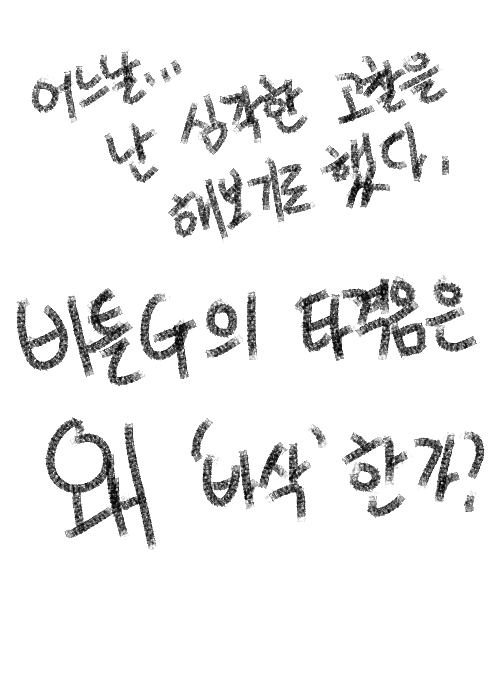 어느날...
난 심각한 고찰을
해보기로 했다.
바톨G의 타격음은
왜 '바삭' 한가?